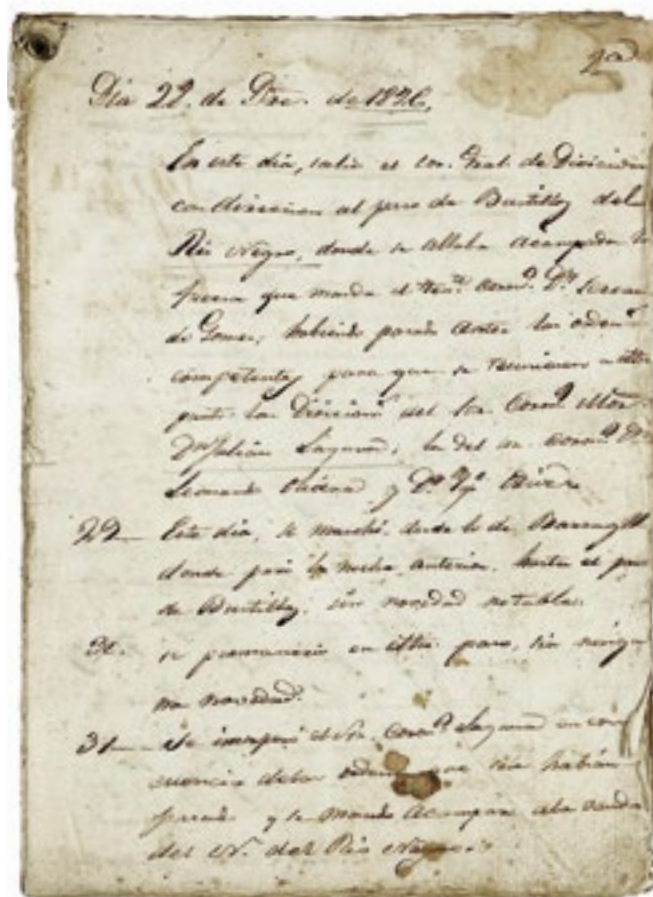 Dia 28 de Dre. de 1826,
En este dia, salio el Sor. Gral. de Division
con direccion al paso de Bustillos del
Rio Negro, donde se allaba acampada la
fuerza que manda el Ten.e Coron.l D.n
de Gomez; habiendo pasado antes las orden.s
competentes para que se reuniesen a dho
punto la Division del Sor. Coron.l
D.n Julian Laguna, la del
Leonardo Olivera y D.n
29 Este dia, se marchó desde lo de
donde pasó la noche anterior, hasta el paso
de Bustillos, sin novedad notable.
30. se permanecio en dho. paso, sin ningu-
na novedad.
31 Se incorporó el Sor. Coron.l Laguna en con
cuencia delas ordenes que se le habian
pasado y se mandó acampar ala vanda
del N. del Rio Negro.